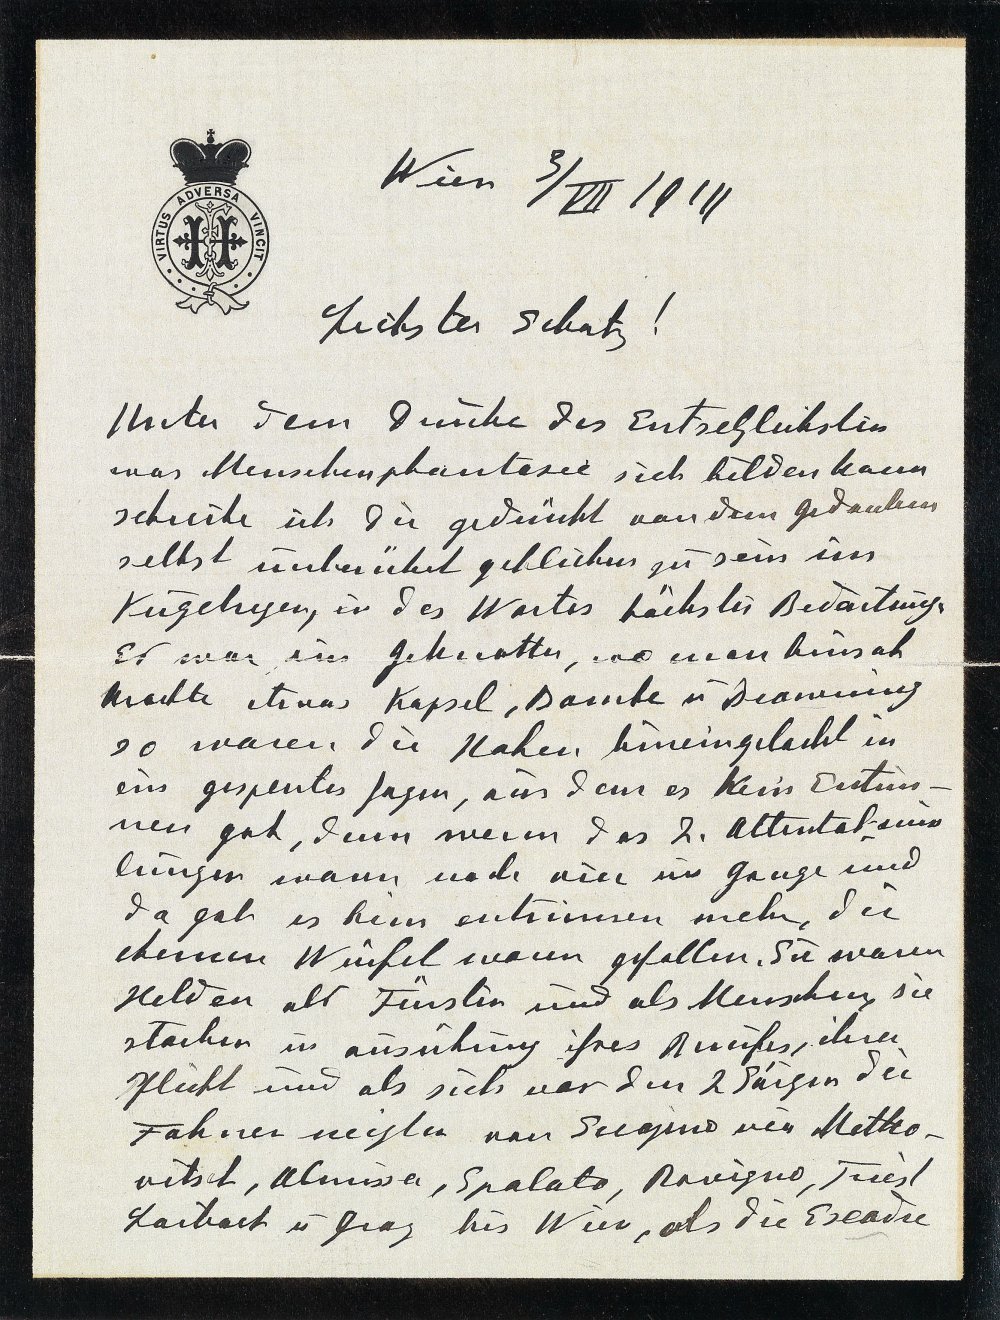 VIRTUS ADVERSA VINCIT
H
Wien 3/VII 1914
Liebster Schatz!
Unter dem Drucke des Entsetzlichsten
was Menschenphantasie sich bilden kann
schreibe ich dir gedrückt von dem Gedanken
selbst unberührt geblieben zu sein im
Kugelregen, in des Wortes höchster Bedeutung.
Es war ein Geknatter, wo man hinsah
krachte etwas Kapsel, Bombe u Browning
so waren die Hohen hineingelockt in
ein Jagen, aus dem es kein Entrin-
nen gab, denn wenn das 2. Attentat
lungen waren noch vier im Gange und
da gab es kein entrinnen mehr, die
ehernen Würfel waren gefallen. Sie waren
Helden als Fürsten und als Menschen, sie
starben in ausübung ihres Berufes, ihrer
Pflicht und als sich vor den 2 Särgen die
Fahnen neigten von Sarajevo via Metko-
vitsch, Almissa, Spalato, Rovigno, Triest
Laibach u Graz bis Wien, als die Escadre